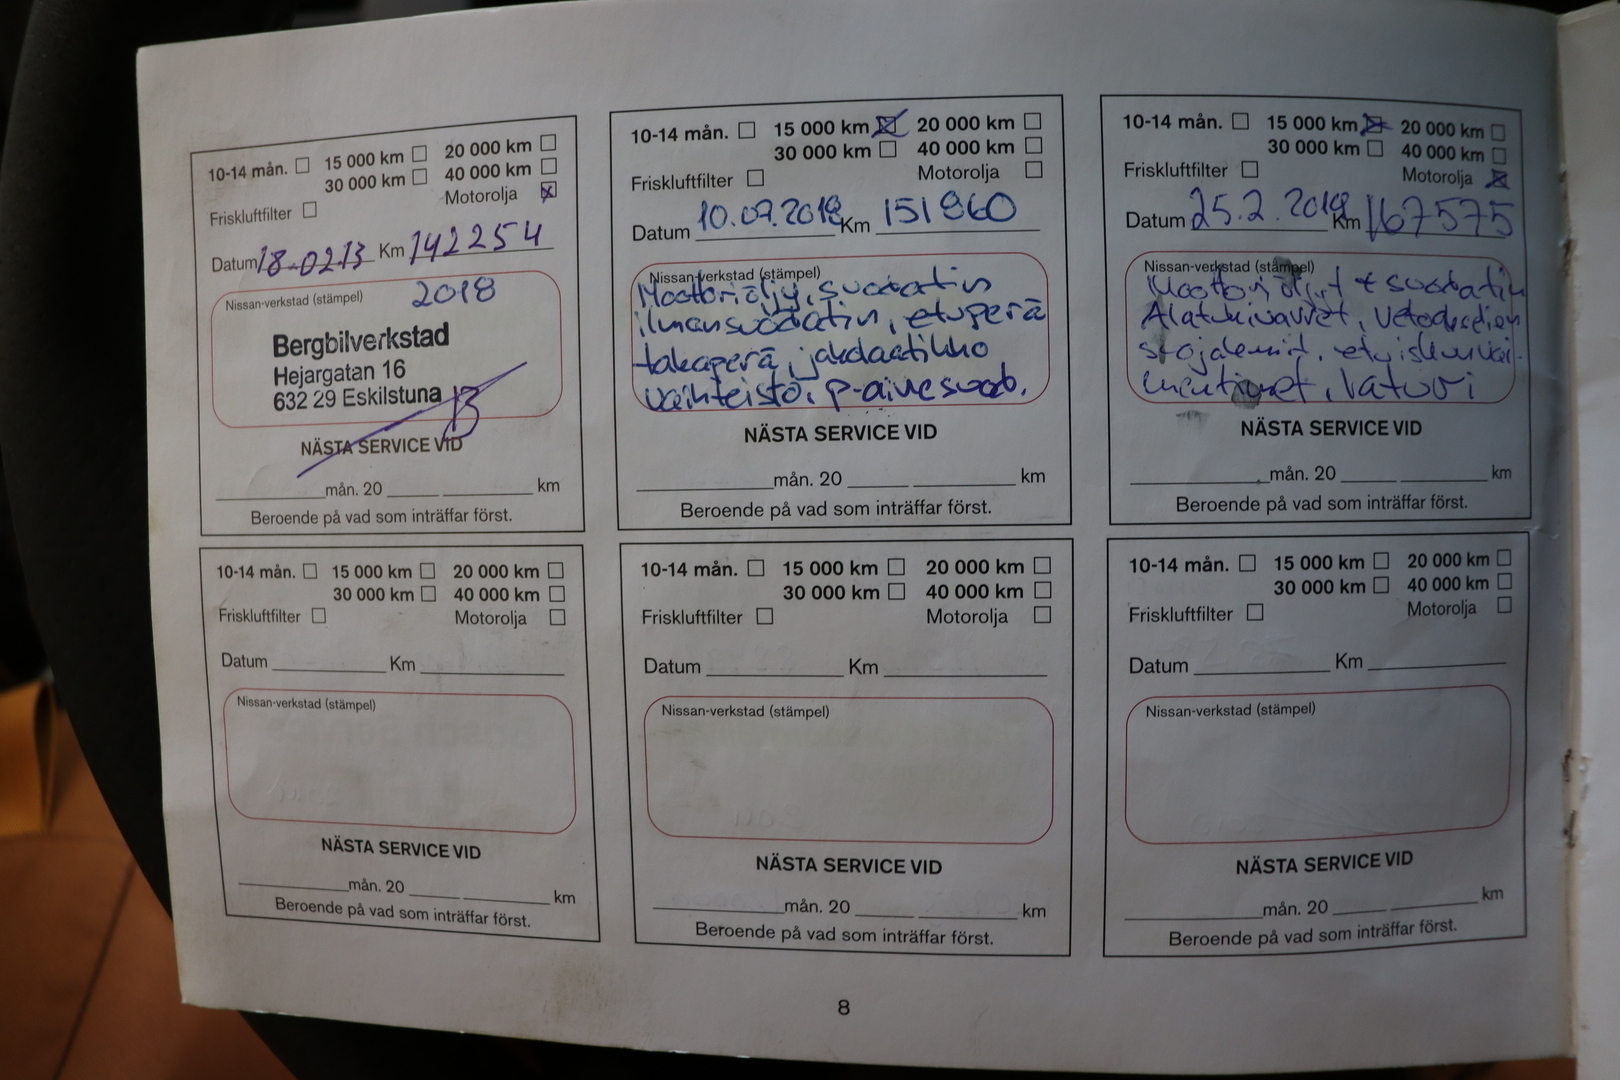 10-14 mån. 15 000 km 20 000 km
30 000 km 40 000 km
Friskluftfilter Motorolja
Datum 18-02-13 Km 142254
Nissan-verkstad (stämpel) 2018
Bergbilverkstad
Hejargatan 16
632 29 Eskilstuna
NÄSTA SERVICE VID
mån. 20 km
Beroende på vad som inträffar först.
10-14 mån. 15 000 km 20 000 km
30 000 km 40 000 km
Friskluftfilter Motorolja
Datum 10.07.2018 Km 151860
Nissan-verkstad (stämpel)
Moottoriöljy, suodatin
ilmansuodatin, etuperä
takaperä, jakolaatikko
vaihteisto, p-ainesuod.
NÄSTA SERVICE VID
mån. 20 km
Beroende på vad som inträffar först.
10-14 mån. 15 000 km 20 000 km
30 000 km 40 000 km
Friskluftfilter Motorolja
Datum 25.2.2019 Km 167575
Nissan-verkstad (stämpel)
Moottoriöljyt + suodatin
Alatukivarret, vetoakselien
suojakumit, etuiskunvai-
mentimet, laturi
NÄSTA SERVICE VID
mån. 20 km
Beroende på vad som inträffar först.
10-14 mån. 15 000 km 20 000 km
30 000 km 40 000 km
Friskluftfilter Motorolja
Datum Km
Nissan-verkstad (stämpel)
NÄSTA SERVICE VID
mån. 20 km
Beroende på vad som inträffar först.
10-14 mån. 15 000 km 20 000 km
30 000 km 40 000 km
Friskluftfilter Motorolja
Datum Km
Nissan-verkstad (stämpel)
NÄSTA SERVICE VID
mån. 20 km
Beroende på vad som inträffar först.
10-14 mån. 15 000 km 20 000 km
30 000 km 40 000 km
Friskluftfilter Motorolja
Datum Km
Nissan-verkstad (stämpel)
NÄSTA SERVICE VID
mån. 20 km
Beroende på vad som inträffar först.
8